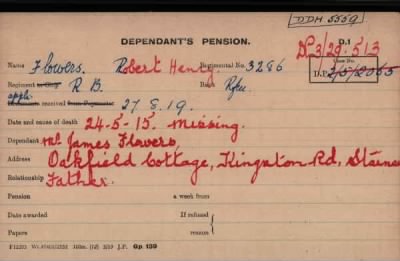 DDH 5559
DEPENDANT'S PENSION. D.1
DP3/29513
Name Flowers. Robert Henry. Regimental No. 3286 Case No.
Regiment R B. Rank Rfn. D.P. 2/5/2055
appli. received 27.8.19.
Date and cause of death 24-5-15. Missing.
Dependant Mr. James Flowers,
Address Oakfield Cottage, Kingston Rd, Staines
Relationship Father.
Pension a week from
Date awarded If refused
Papers reason
Gp. 139